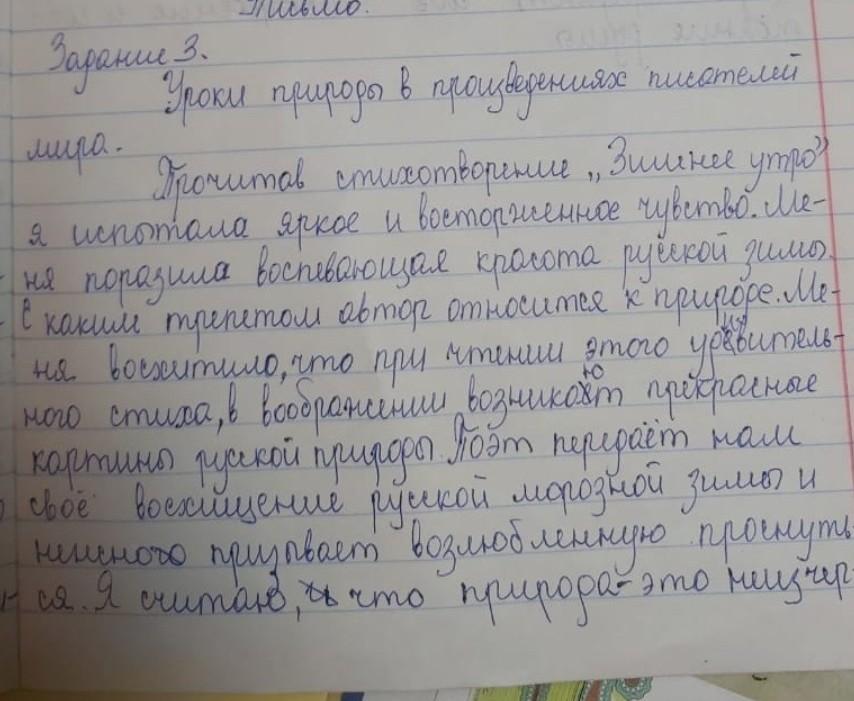 Письмо.
Задание 3.
Уроки природы в произведениях писателей
мира.
Прочитав стихотворение „Зимнее утро”
я испытала яркое и восторженное чувство. Ме-
ня поразила воспевающая красота русской зимы.
С каким трепетом автор относится к природе. Ме-
ня восхитило, что при чтении этого удивитель-
ного стиха, в воображении возникают прекрасные
картины русской природы. Поэт передаёт нам
своё восхищение русской морозной зимы и
немного призывает возлюбленную проснуть-
ся. Я считаю, что природа - это неисчер-